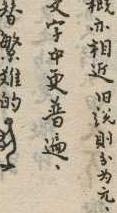 概亦相近旧说则分为元、
文字中更普遍、
替繁雜的